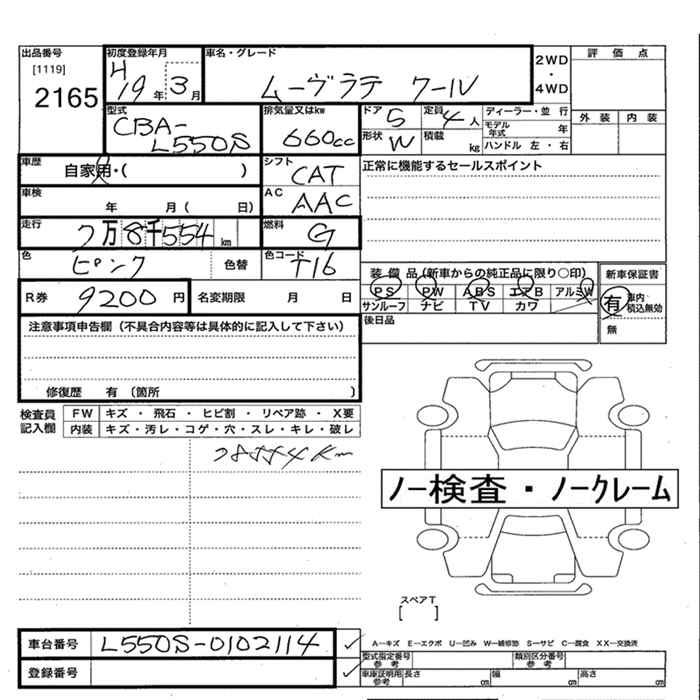 出品番号
[1119]
2165
初度登録年月
H 19年 3月
車名・グレード
ムーヴラテ クール
2WD
・
4WD
評価点
外装 内装
型式
CBA-
L550S
排気量又はkw
660cc
ドア 5
定員 4人
ディーラー・並行
モデル年式 年
形状 W
積載 kg
ハンドル 左・右
車歴
自家用・( )
シフト
CAT
正常に機能するセールスポイント
車検
年 月( 日)
AC
AAC
走行
7万8千554km
燃料
G
色
ピンク 色替
色コード
T16
装備品(新車からの純正品に限り○印)
新車保証書
PS PW ABS エアB アルミW
サンルーフ ナビ TV カワ
有 車内積込無効
無
R券 9200円
名変期限 月 日
後日品
注意事項申告欄(不具合内容等は具体的に記入して下さい)
修復歴 有(箇所 )
検査員記入欄
FW キズ・飛石・ヒビ割・リペア跡・X要
内装 キズ・汚レ・コゲ・穴・スレ・キレ・破レ
78554km
ノー検査・ノークレーム
スペアT
[ ]
車台番号 L550S-0102114
登録番号
A-キズ E-エクボ U-凹み W-補修跡 S-サビ C-腐食 XX-交換済
型式指定番号 参考
類別区分番号 参考
車庫証明用参考 長さ cm 幅 cm 高さ cm